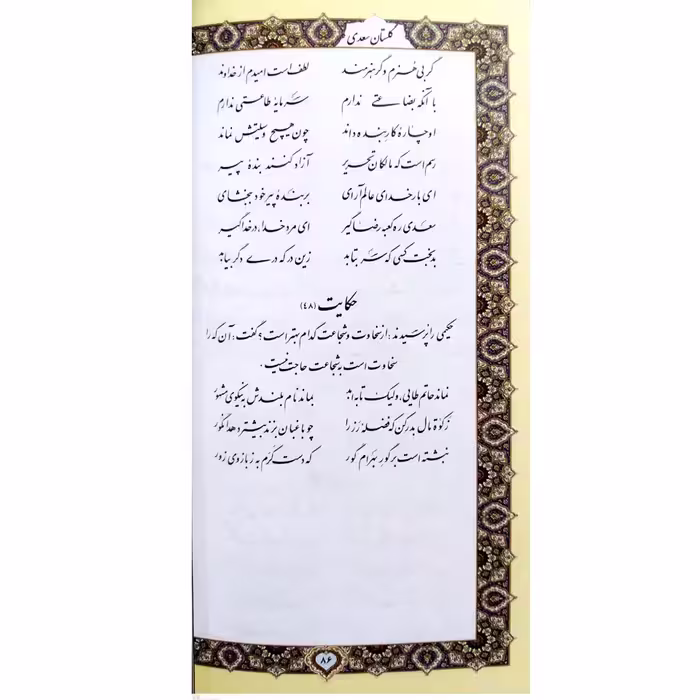 گلستان سعدی
گر بی هنرم و گر هنرمند لطف است امیدم از خداوند
با آنکه بضاعتی ندارم سرمایهٔ طاعتی ندارم
او چارهٔ کار بنده داند چون هیچ وسیلتش نماند
رسم است که مالکان تحریر آزاد کنند بندهٔ پیر
ای بار خدای عالم آرای بر بندهٔ پیر خود ببخشای
سعدی ره کعبه رضا گیر ای مرد خدا، در خدا گیر
بدبخت کسی که سر بتابد زین در که دری دگر بیابد
حکایت (٤٨)
حکیمی را پرسیدند: از سخاوت و شجاعت کدام بهتر است؟ گفت: آن که را
سخاوت است به شجاعت حاجت نیست.
نماند حاتم طایی، ولیک تا به ابد بماند نام بلندش به نیکوی مشهور
زکوة مال بدر کن که فضلهٔ رز را چو باغبان بزند بیشتر دهد انگور
نبشته است بر گور بهرام گور که دست کرم به ز بازوی زور
۸۶